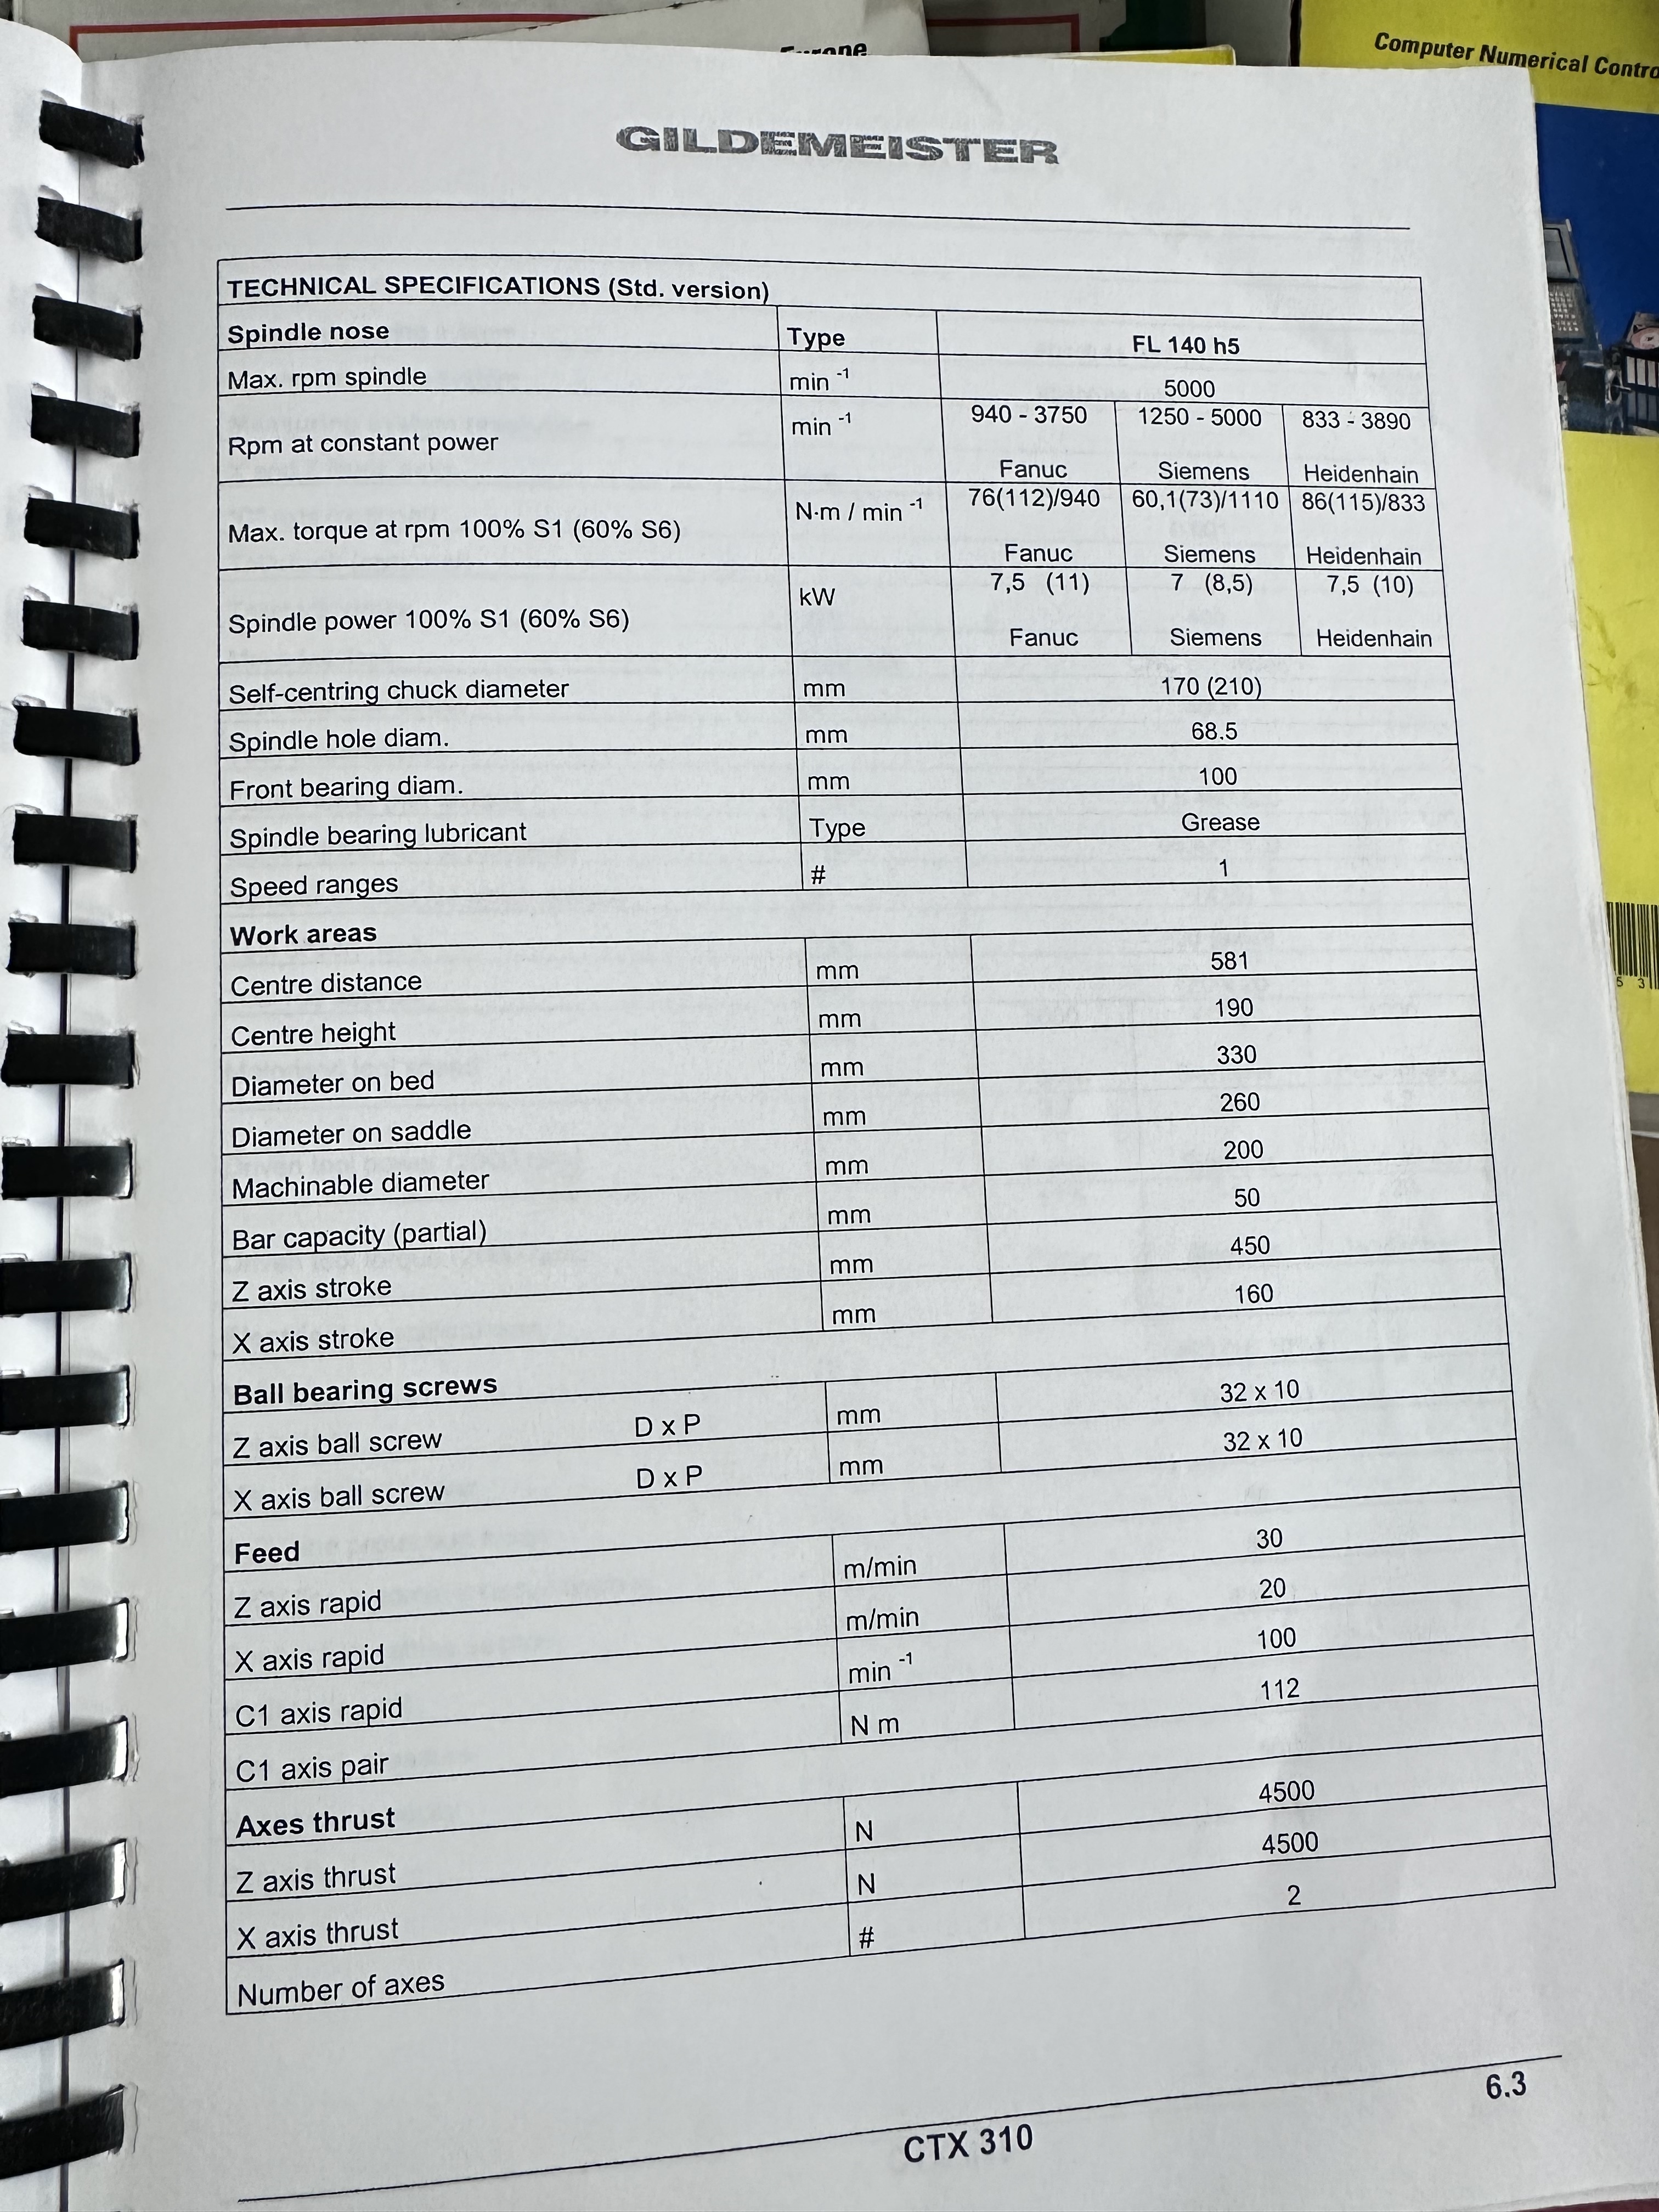 Computer Numerical
GILDEMEISTER
TECHNICAL SPECIFICATIONS (Std. version)
Spindle nose Type FL 140 h5
Max. rpm spindle min -1 5000
Rpm at constant power min -1 940 - 3750 Fanuc 1250 - 5000 Siemens 833 - 3890 Heidenhain
Max. torque at rpm 100% S1 (60% S6) N·m / min -1 76(112)/940 Fanuc 60,1(73)/1110 Siemens 86(115)/833 Heidenhain
Spindle power 100% S1 (60% S6) kW 7,5 (11) Fanuc 7 (8,5) Siemens 7,5 (10) Heidenhain
Self-centring chuck diameter mm 170 (210)
Spindle hole diam. mm 68.5
Front bearing diam. mm 100
Spindle bearing lubricant Type Grease
Speed ranges # 1
Work areas
Centre distance mm 581
Centre height mm 190
Diameter on bed mm 330
Diameter on saddle mm 260
Machinable diameter mm 200
Bar capacity (partial) mm 50
Z axis stroke mm 450
X axis stroke mm 160
Ball bearing screws
Z axis ball screw D x P mm 32 x 10
X axis ball screw D x P mm 32 x 10
Feed
Z axis rapid m/min 30
X axis rapid m/min 20
C1 axis rapid min -1 100
C1 axis pair N m 112
Axes thrust
Z axis thrust N 4500
X axis thrust N 4500
Number of axes # 2
6.3
CTX 310